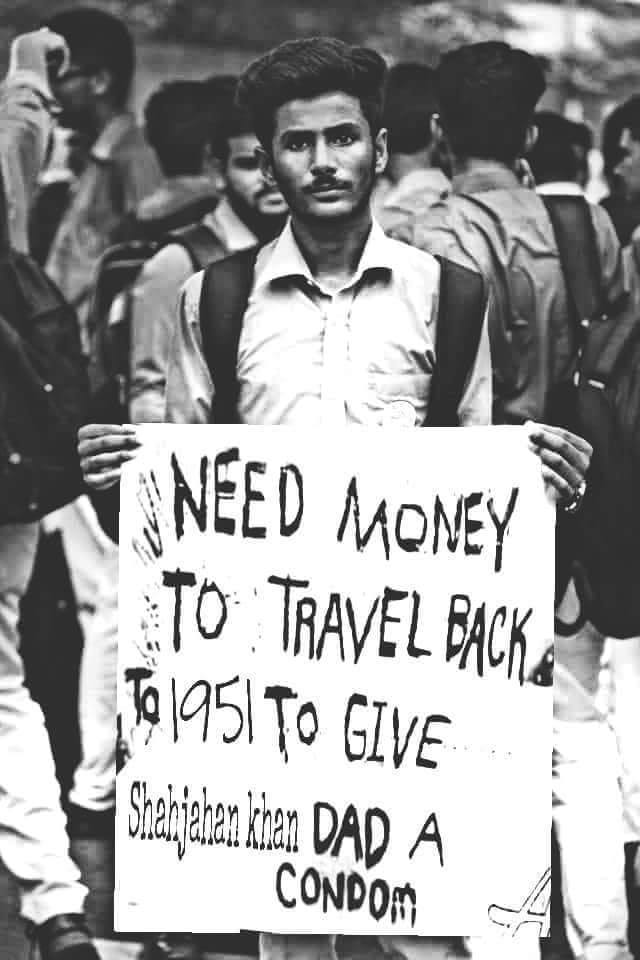 NEED MONEY
TO TRAVEL BACK
To 1951 To GIVE........
Shahjahan khan DAD A
CONDOM